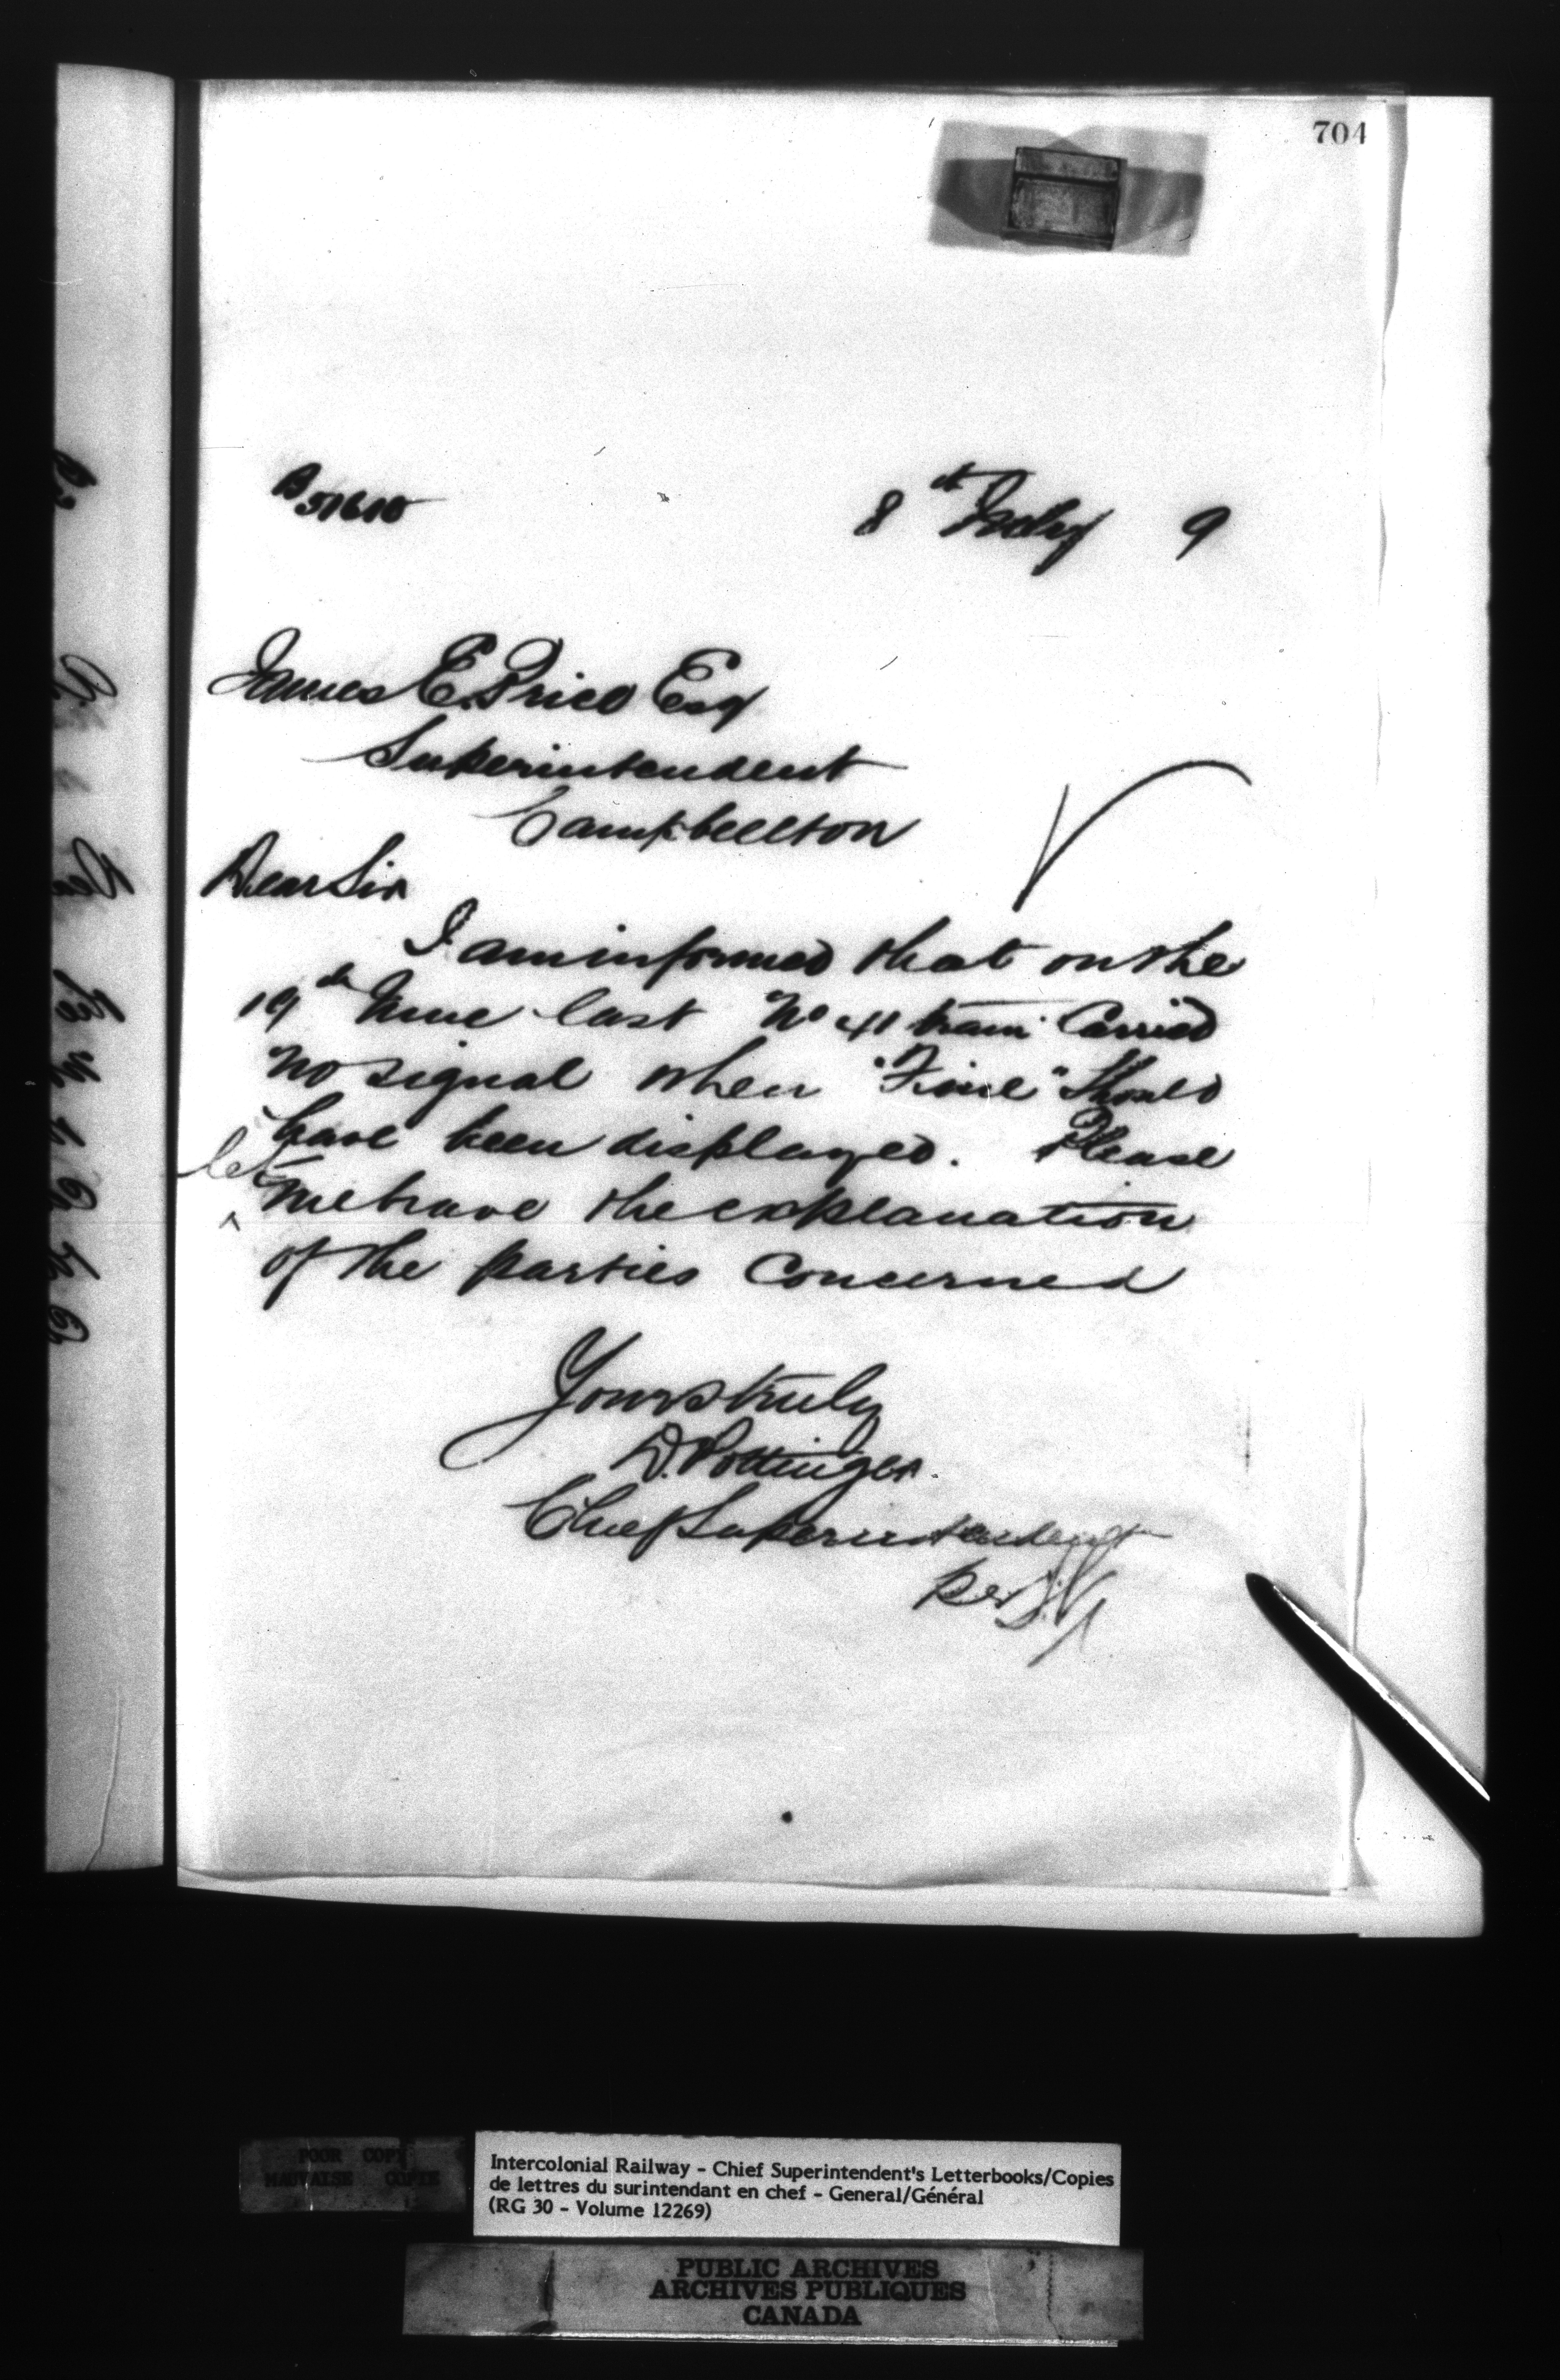 704
B51610
8th July 9
James E. Price Esq
Superintendent
Campbellton
Dear Sir
I am informed that on the
19th June last No 41 train Carried
no signal when "Fine" Should
have been displayed. Please
let me have the explanation
of the parties Concerned
Yours truly
D. Pottinger.
Chief Superintendent
Per
POOR COPY
MAUVAISE COPIE
Intercolonial Railway - Chief Superintendent's Letterbooks/Copies
de lettres du surintendant en chef - General/Général
(RG 30 - Volume 12269)
PUBLIC ARCHIVES
ARCHIVES PUBLIQUES
CANADA